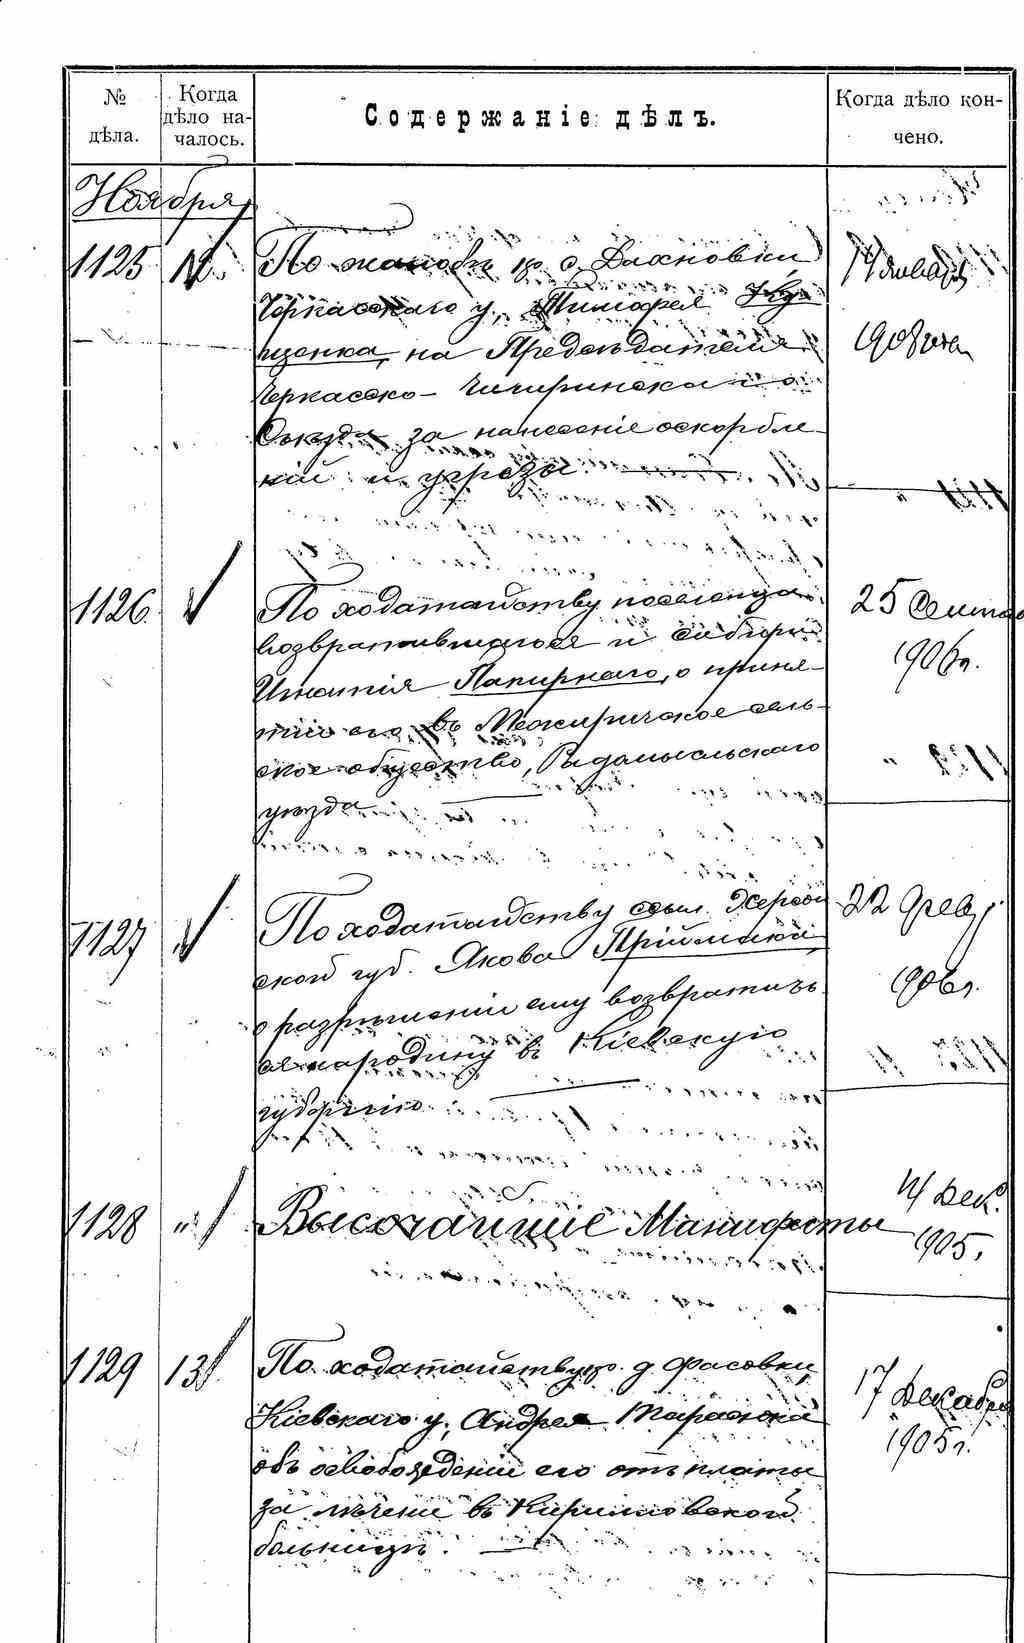 № дѣла.
Когда дѣло началось.
Содержаніе дѣлъ.
Когда дѣло кончено.
Ноября
1125 12
По жалобѣ кр. с. Вахновки
Черкасскаго у. Тимофея
щенка, на Предсѣдателя
Черкасско-Чигиринскаго
Съѣзда за нанесеніе оскорбле-
ній и угрозы
14 января
1908 года
1126 "
По ходатайству поселенца
возвратившагося из Сибири
Игнатія Папирнаго, о приня-
тіи его въ Межиричское сель-
ское общество, Радомысльскаго
уѣзда
25 Сентяб
1906 г.
1127 "
По ходатайству ссыл. Херсон
ской губ. Якова Пріймака,
о разрѣшеніи ему возвратить
ся на родину въ Кіевскую
губернію
22 Февр
1906 г.
1128 "
Высочайшіе Манифесты
14 Дек.
1905.
1129 13
По ходатайству кр. д. Фасовки,
Кіевскаго у., Андрея Тарасюка
объ освобожденіи его отъ платы
за лѣченіе въ Кирилловской
больницѣ.
17 Декабря
1905 г.